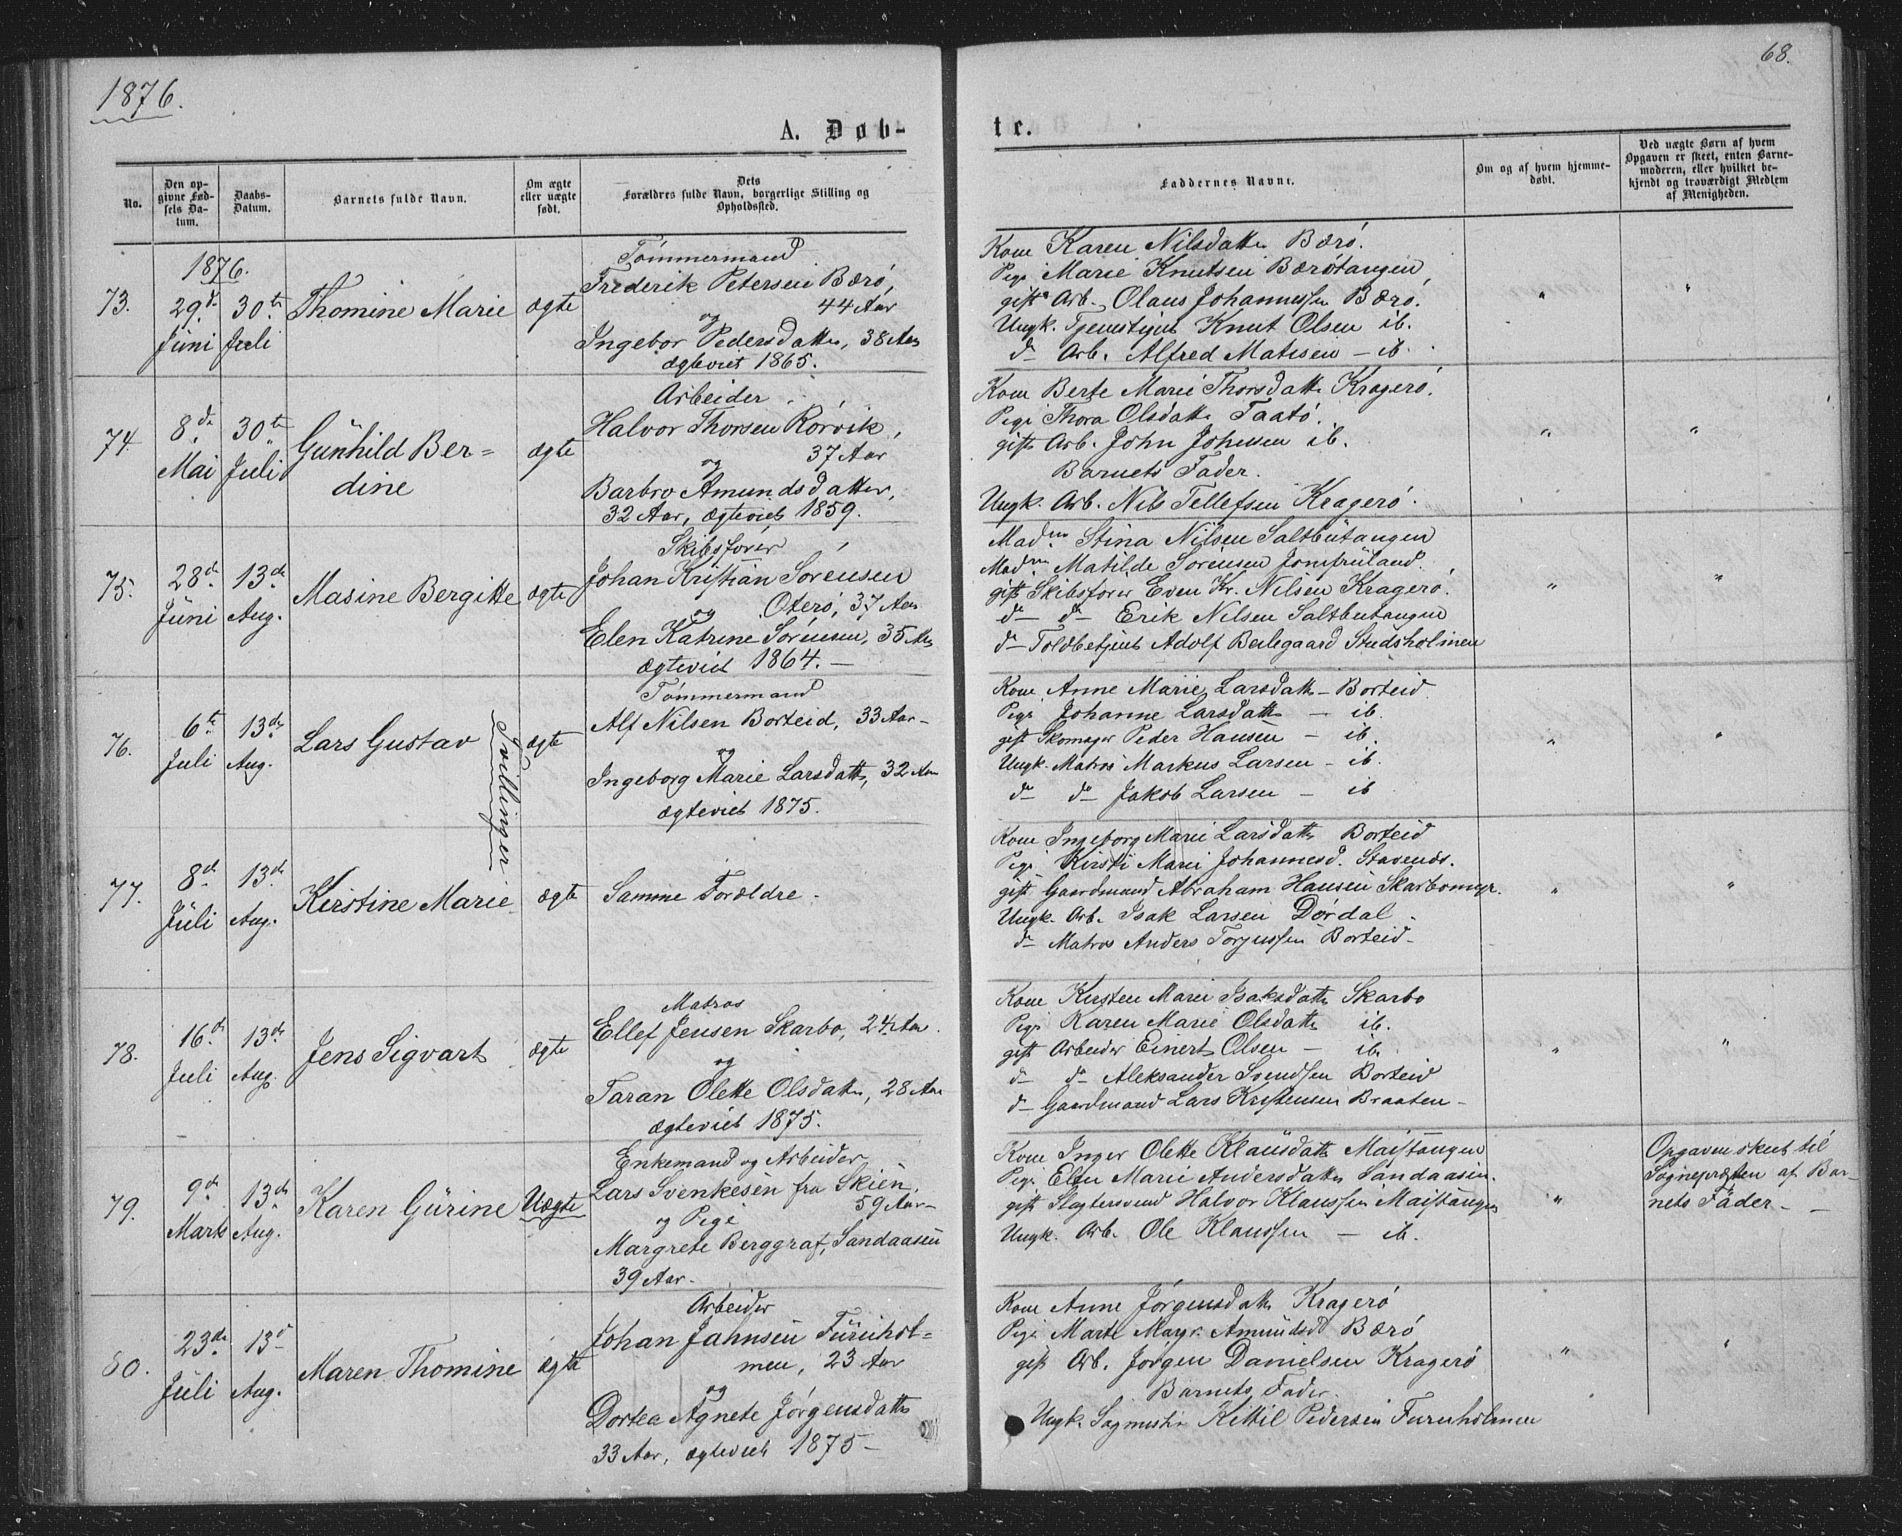 1876.
68.
A. Døb-
te.
No.
Den op-
givne Fød-
sels Da-
tum.
Daabs-
Datum.
Barnets fulde Navn.
Om ægte
eller uægte
født.
Dets
Forældres fulde Navn, borgerlige Stilling og
Opholdssted.
Faddernes Navne.
Om og af hvem hjemme-
døbt.
Ved uægte Børn af hvem
Opgaven er skeet, enten Barne-
moderen, eller hvilket be-
kjendt og troværdigt Medlem
af Menigheden.
1876.
73.
29d.
Juni
30te
Juli
Thomine Marie
ægte
Tømmermand
Frederik Petersen Bærø,
44 Aar
og
Ingebor Pedersdatter, 38 Aar
ægteviet 1865.
Kone Karen Nilsdatter Bærø.
Pige Marie Knutsen Bærøtangen
gift Arb. Olaus Johannessen Bærø.
Ungk. Tjenestejnt Knut Olsen ib.
do Arb. Alfred Matisen – ib.
"
"
74.
8de
Mai
30te
Juli
Gunhild Ber=
dine
ægte
Arbeider
Halvor Thorsen Rørvik,
37 Aar
og
Barbro Amundsdatter,
32 Aar, ægteviet 1859.
Kone Berte Marie Thorsdatter Kragerø.
Pige Thora Olsdatter Taatø.
gift Arb. John Johnsen ib.
Barnets Fader.
Ungk. Arb. Nils Tellefsen Kragerø.
"
"
75.
28de
Juni
13de
Aug.
Masine Bergitte
ægte
Skibsfører
Johan Kristian Sørensen
og Oterø, 37 Aar
Elen Katrine Sørensen, 35 Aar
ægteviet 1864. –
Madm Stina Nilsen Saltbutangen
Madm Matilde Sørensen Jomfruland.
gift Skibsfører Even Kr. Nilsen Kragerø.
do – do – Erik Nilsen Saltbutangen
do – Toldbetjent Adolf Beilegaard Studsholmen
"
"
76.
6te
Juli
13de
Aug.
Lars Gustav
Tvillinger
ægte
Tømmermand
Alf Nilsen Borteid, 33 Aar –
og
Ingeborg Marie Larsdatter, 32 Aar
ægteviet 1875.
Kone Anne Marie Larsdatter – Borteid
Pige Johanne Larsdatter – ib.
gift Skomager Peder Hansen – ib.
Ungk. Matros Markus Larsen – ib.
do do – Jakob Larsen – ib
"
"
77.
8de
Juli
13de
Aug.
Kirstine Marie
ægte
Samme Forældre.
Kone Ingeborg Marie Larsdatter Borteid
Pige Kirsti Marie Johannesd. Stavends.
gift Gaardmand Abraham Hansen Skarbomyr.
Ungk. Arb. Isak Larsen Dørdal.
do – Matros Anders Torjussen Borteid –
"
"
78.
16de
Juli
13de
Aug.
Jens Sigvart
ægte
Matros
Ellef Jensen Skarbo, 24 Aar.
og
Taran Olette Olsdatter, 28 Aar
ægteviet 1875.
Kone Kirsten Marie Isaksdatter Skarbo
Pige Karen Marie Olsdatter ib.
gift Arbeider Einert Olsen – ib.
do – do – Aleksander Svendsen Borteid
do – Gaardmand Lars Kristensen Braaten –
"
"
79.
9de
Marts
13de
Aug.
Karen Gurine
Uægte
Enkemand og Arbeider
Lars Svenkesen fra Skien
59 Aar –
og Pige
Margrete Berggraf, Sandaasen
39 Aar –
Kone Inger Olette Klausdatter Maistangen
Pige Elen Marie Andersdatter Sandaasen.
gift Slagtersvend Halvor Klaussen Maistangen
Ungk. Arb. Ole Klaussen – ib.
"
Opgaven skeet til
Sognepræsten af Bar-
nets Fader – –
80.
23de
Juli
13d
Aug.
Maren Thomine
ægte
Arbeider
Johan Jahnsen Furuhol=
men, 23 Aar
og
Dortea Agnete Jørgensdatter
33 Aar, ægteviet 1875 –
Kone Anne Jørgensdatter Kragerø
Pige Marte Margr. Amundsd Bærø
gift Arb. Jørgen Danielsen Kragerø
Barnets Fader.
Ungk. Sagmester Kittil Pedersen Furuholmen
"
"